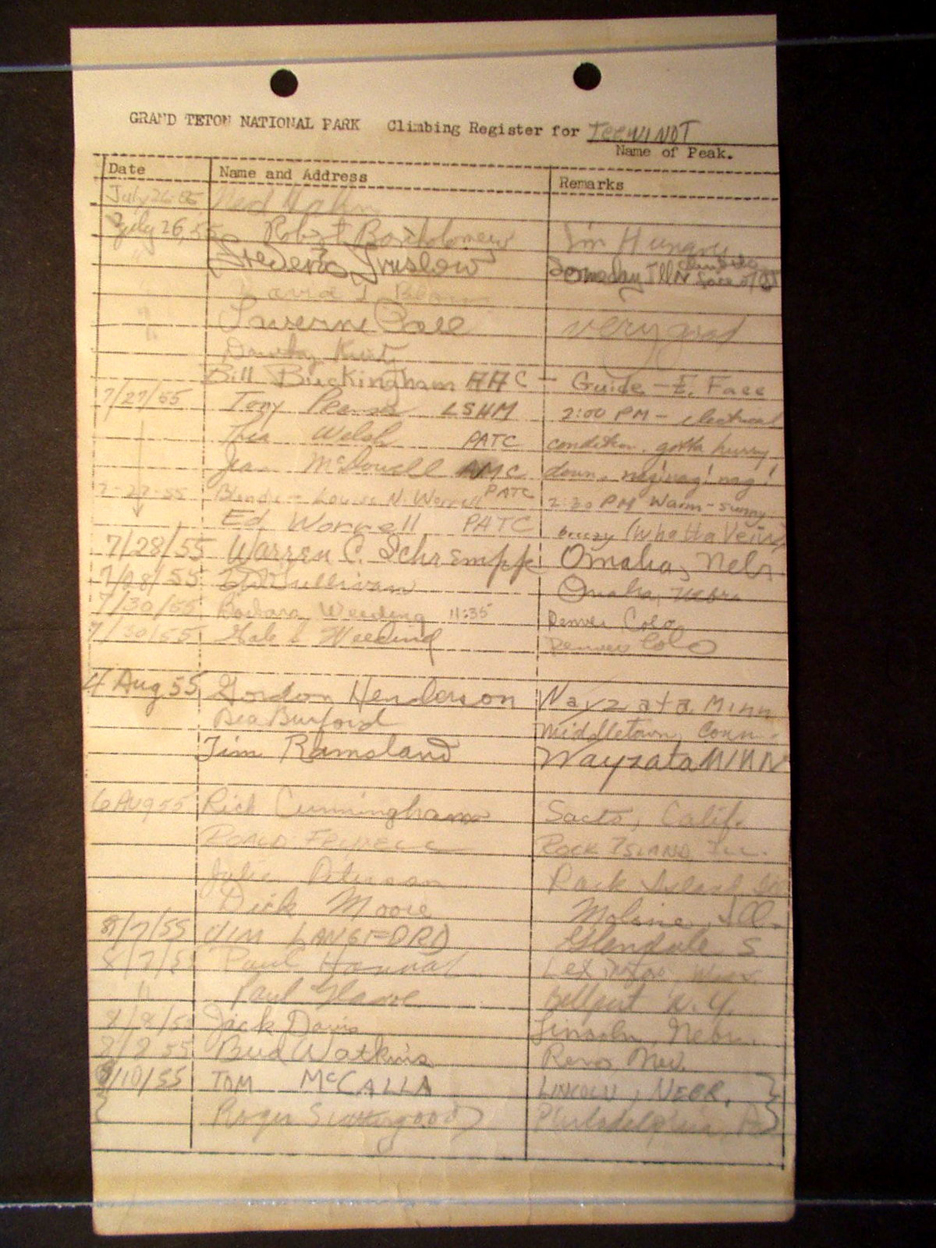 GRAND TETON NATIONAL PARK Climbing Register for TEEWINOT
Name of Peak.
Date Name and Address Remarks
July 26
July 26, 55 Robt Bartholomew I'm Hungry
" Frederic Truslow Someday I'll climb the N face of
David L.
" Laverne very good
"
Bill Buckingham AAC - Guide - E. Face
7/27/55 Tony LSHM 2:00 PM - electrical
Welsh PATC condition, gotta hurry
Jean McDowell AMC down, nag! nag! nag!
7-27-55 Blondie - Louise N. Worrell PATC 2:30 PM Warm - sunny
Ed Worrell PATC breezy (Whatta View)
7/28/55 Warren C. Schrempp Omaha, Nebr
7/28/55 Sullivan Omaha, Nebr
7/30/55 Barbara Weeding 11:35 Denver Colo
7/30/55 Gale L Weeding Denver Colo
4 Aug 55 Gordon Henderson Wayzata, Minn
Bea Burford Middletown, Conn.
Jim Ramsland Wayzata MINN
6 AUG 55 Rick Cunningham Sacto, Calif.
ROCK ISLAND, ILL.
Julie Peterson Rock Island, Ill
Dick Moore Moline, Ill.
8/7/55 JIM LANGFORD Glendale
8/7/55 Paul
" Paul Bellport N.Y.
8/9/5 Jack Davis Lincoln, Nebr.
55 Bud Watkins Reno Nev.
8/10/55 TOM McCALLA LINCOLN, NEBR. }
{ Roger } Philadelphia, Pa }